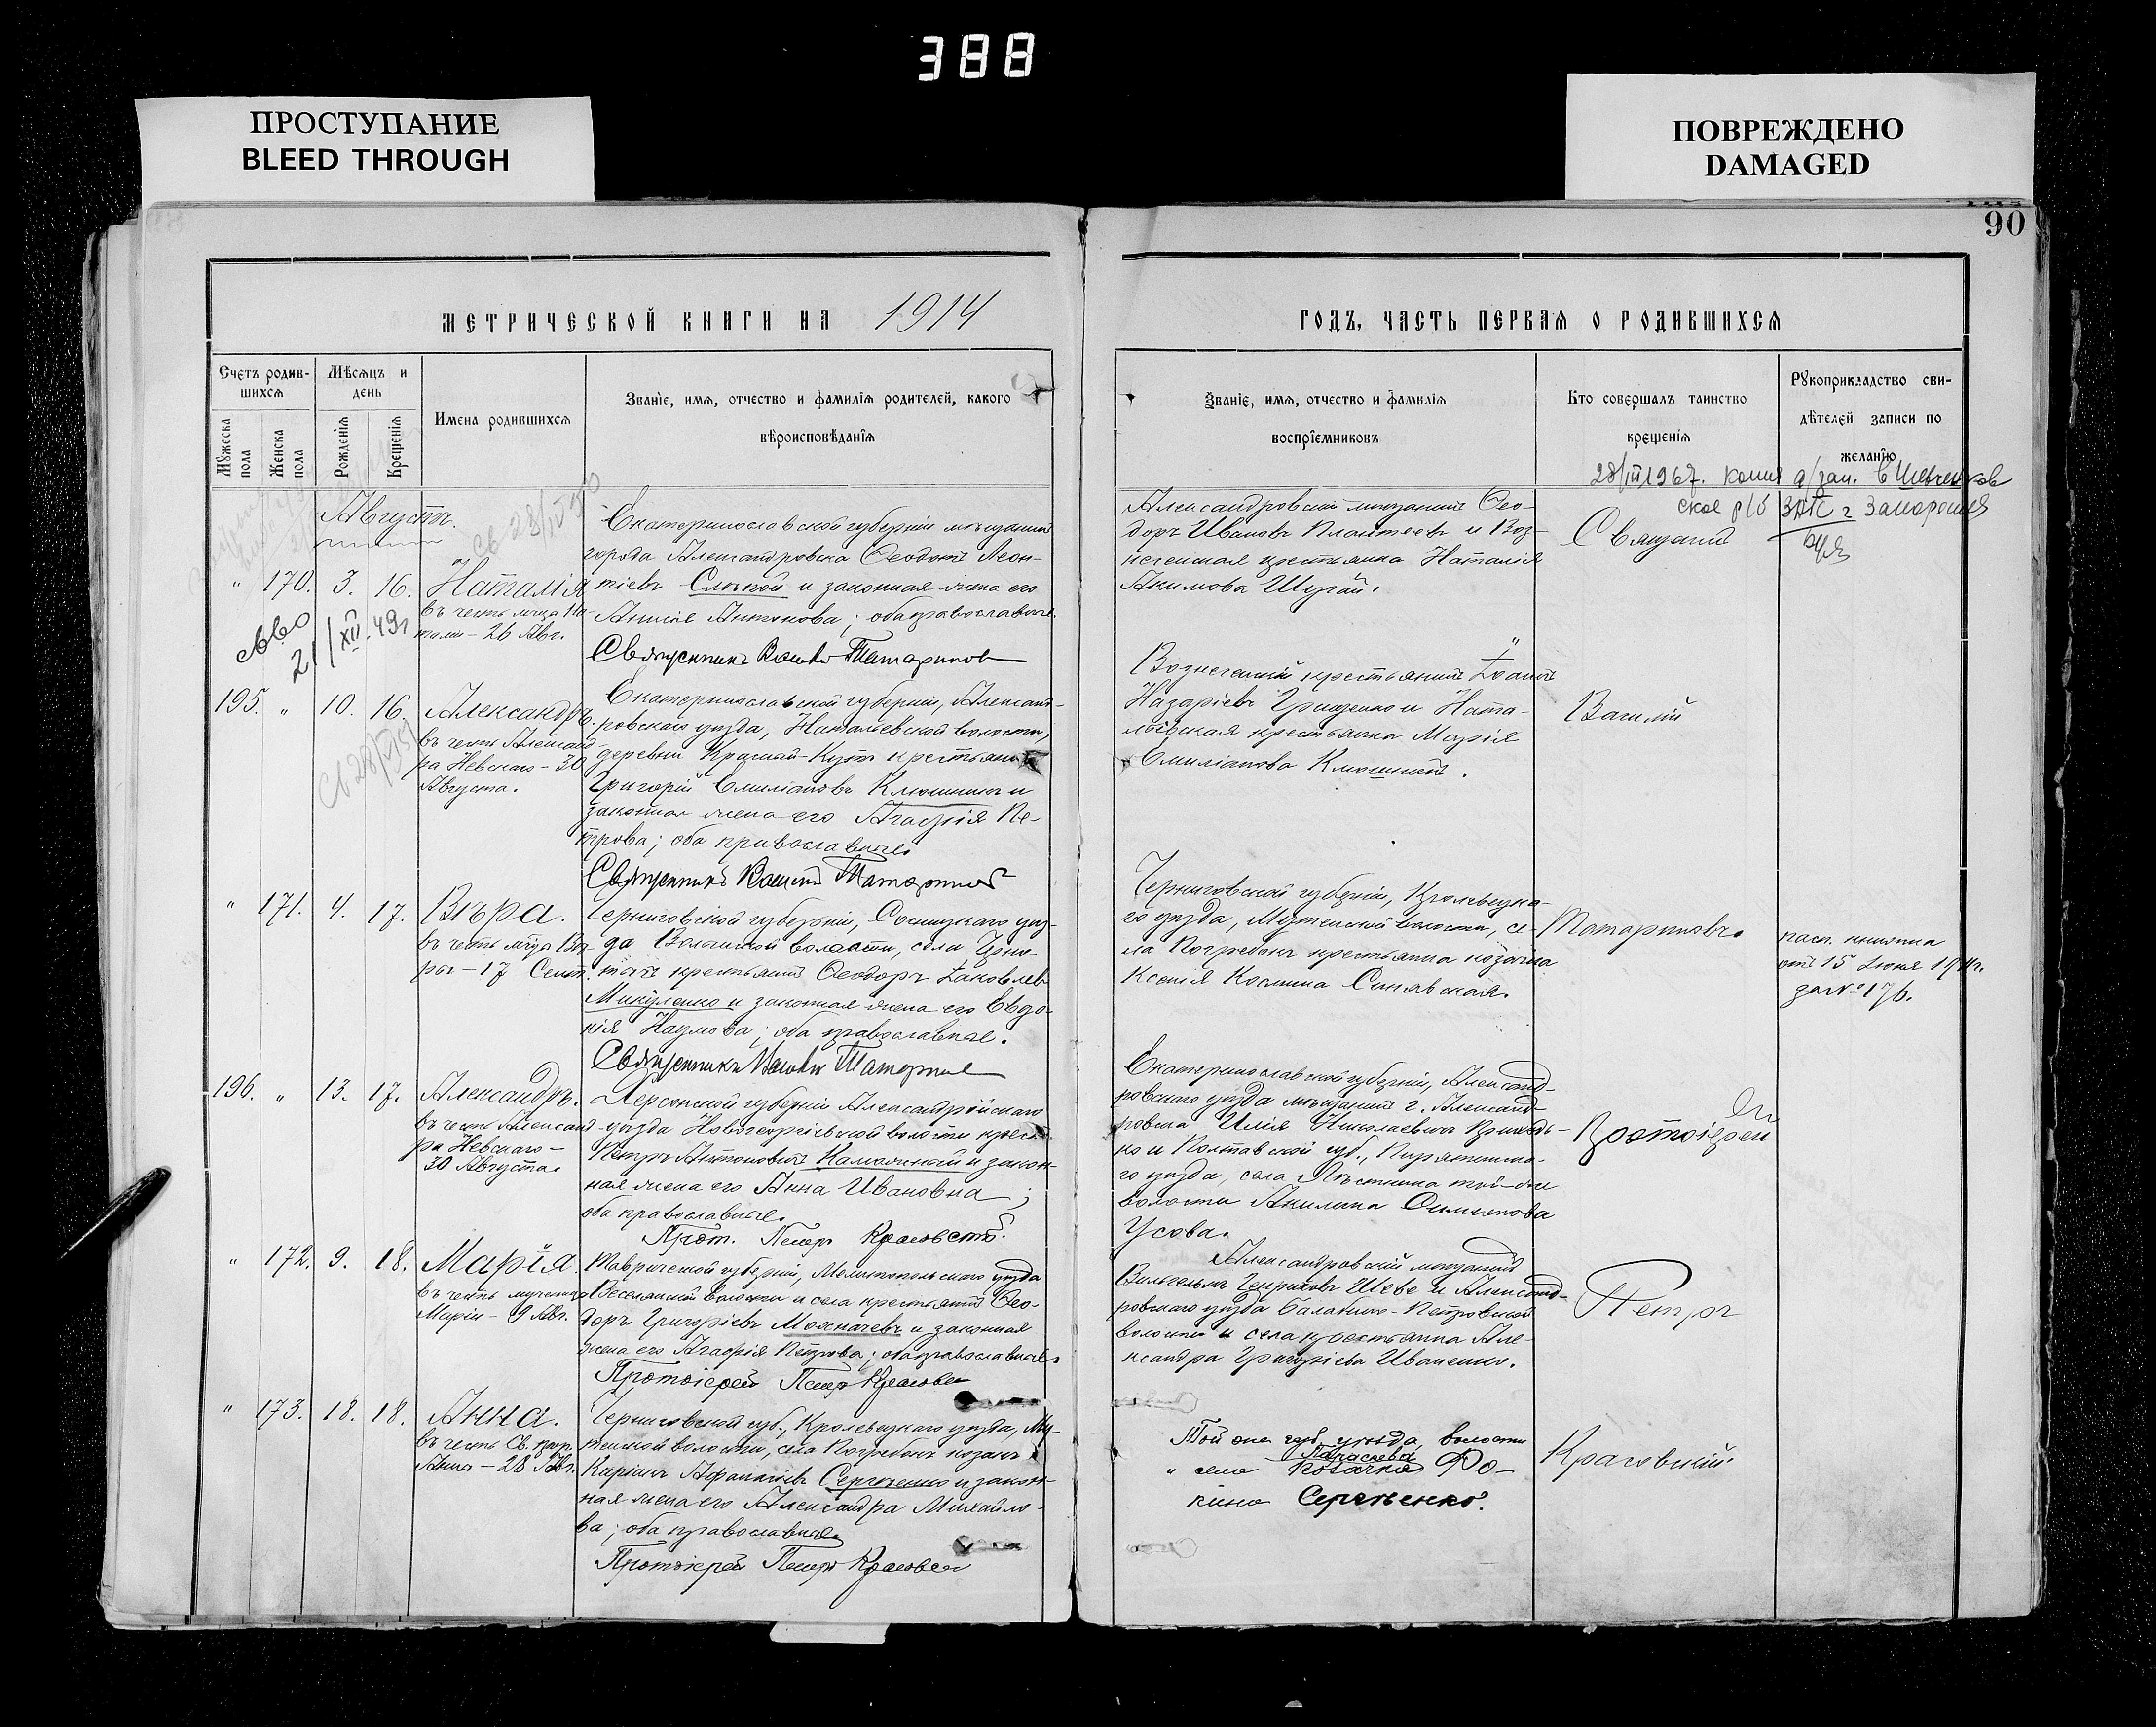 388
ПРОСТУПАНИЕ
BLEED THROUGH
ПОВРЕЖДЕНО
DAMAGED
90
МЕТРИЧЕСКОЙ КНИГИ НА 1914
ГОДЪ, ЧАСТЬ ПЕРВАЯ О РОДИВШИХСЯ
Счетъ родив-
шихся
Мужеска пола
Женска пола
Мѣсяцъ и
день
Рожденія
Крещенія
Имена родившихся
Званіе, имя, отчество и фамилія родителей, какого
вѣроисповѣданія
Званіе, имя, отчество и фамилія
воспріемниковъ
Кто совершалъ таинство
крещенія
Рукоприкладство сви-
дѣтелей записи по
желанію
28/III 1967. копия а/зап. в Шевченков
ское р/б ЗАГС г Запорожья
Августъ.
св 28/IV
" 170. 3. 16. Наталія
въ честь мчца На-
таліи – 26 Авг.
21/XII-49г
Екатеринославской губерніи мѣщанинъ
города Александровска Ѳеодотъ Леон-
тіевъ Слѣпой и законная жена его
Антонова; оба православные.
Священникъ Татаринов
Александровскій мѣщанинъ Ѳео-
доръ Ивановъ и Воз-
несенская крестьянка Наталія
Акимова Шугай.
Священникъ
195. " 10. 16. Александръ.
въ честь Александ-
ра Невскаго – 30
Августа.
Екатеринославской губерніи, Александ-
ровскаго уѣзда, Натальевской волости,
деревни Красный-Кутъ крестьянинъ
Григорій Емиліановъ Клюшникъ и
законная жена его Агафія Пе-
трова; оба православные.
Священникъ Василій Татаринов
Вознесенскій крестьянинъ Іоаннъ
Назаріевъ Грищенко и Ната-
льевская крестьянка Марія
Емиліанова Клюшникъ.
Василій
" 171. 4. 17. Вѣра.
въ честь мчцы Вѣ-
ры – 17 Сент.
Черниговской губерніи, Сосницкаго уѣз-
да Волынской волости, села Черно-
тичъ крестьянинъ Ѳеодоръ Іаковлев
Микуленко и законная жена его Евдо-
кія Наумова; оба православные.
Священникъ Василій Татаринов
Черниговской губерніи, Кролевецка-
го уѣзда, Мутинской волости, се-
ла Погребокъ крестьянка козачка
Ксенія Космина Синявская.
Татариновъ.
пасп. книжка
отъ 15 Іюня 191 г.
за № 176.
196. " 13. 17. Александръ.
въ честь Александ-
ра Невскаго –
30 Августа.
Херсонской губерніи Александрійскаго
уѣзда Новогеоргіевской волости крест.
Петръ Антоновичъ и закон-
ная жена его Анна Ивановна;
оба православные.
Прот. Петръ Красовскій.
Екатеринославской губерніи, Александ-
ровскаго уѣзда мѣщанинъ г. Александ-
ровска Илія Николаевичъ Приходь-
ко и Полтавской губ., Пирятинска-
го уѣзда, села той-же
волости Акилина
Усова.
Протоіерей
" 172. 9. 18. Марія.
въ честь мученицы
Маріи – 9 Авг.
Таврической губерніи, Мелитопольскаго уѣзда
Веселянской волости и села крестьянинъ Ѳео-
доръ Григоріевъ и законная
жена его Агафія Петрова; оба православные.
Протоіерей Петръ Красовск
Александровскій мѣщанинъ
Вильгельмъ Генриховъ и Александ-
ровскаго уѣзда Балабино-Петровской
волости и села крестьянка Але-
ксандра Григоріева Иваненко.
Петръ
" 173. 18. 18. Анна.
въ честь Св. прор.
Анны – 28 Авг.
Черниговской губ., Кролевецкаго уѣзда, Му-
тинской волости, села Погребокъ козакъ
Сергіенко и закон-
ная жена его Александра Михайло-
ва; оба православные.
Протоіерей Петръ Красовск
Той же губ, уѣзда, волости
" села козачка Ѳо-
кина Сергиенко.
Красовскій.